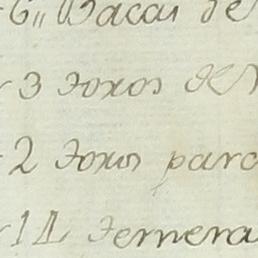 6,, Bacas de
3 toros de
2 toros para
11 ternera